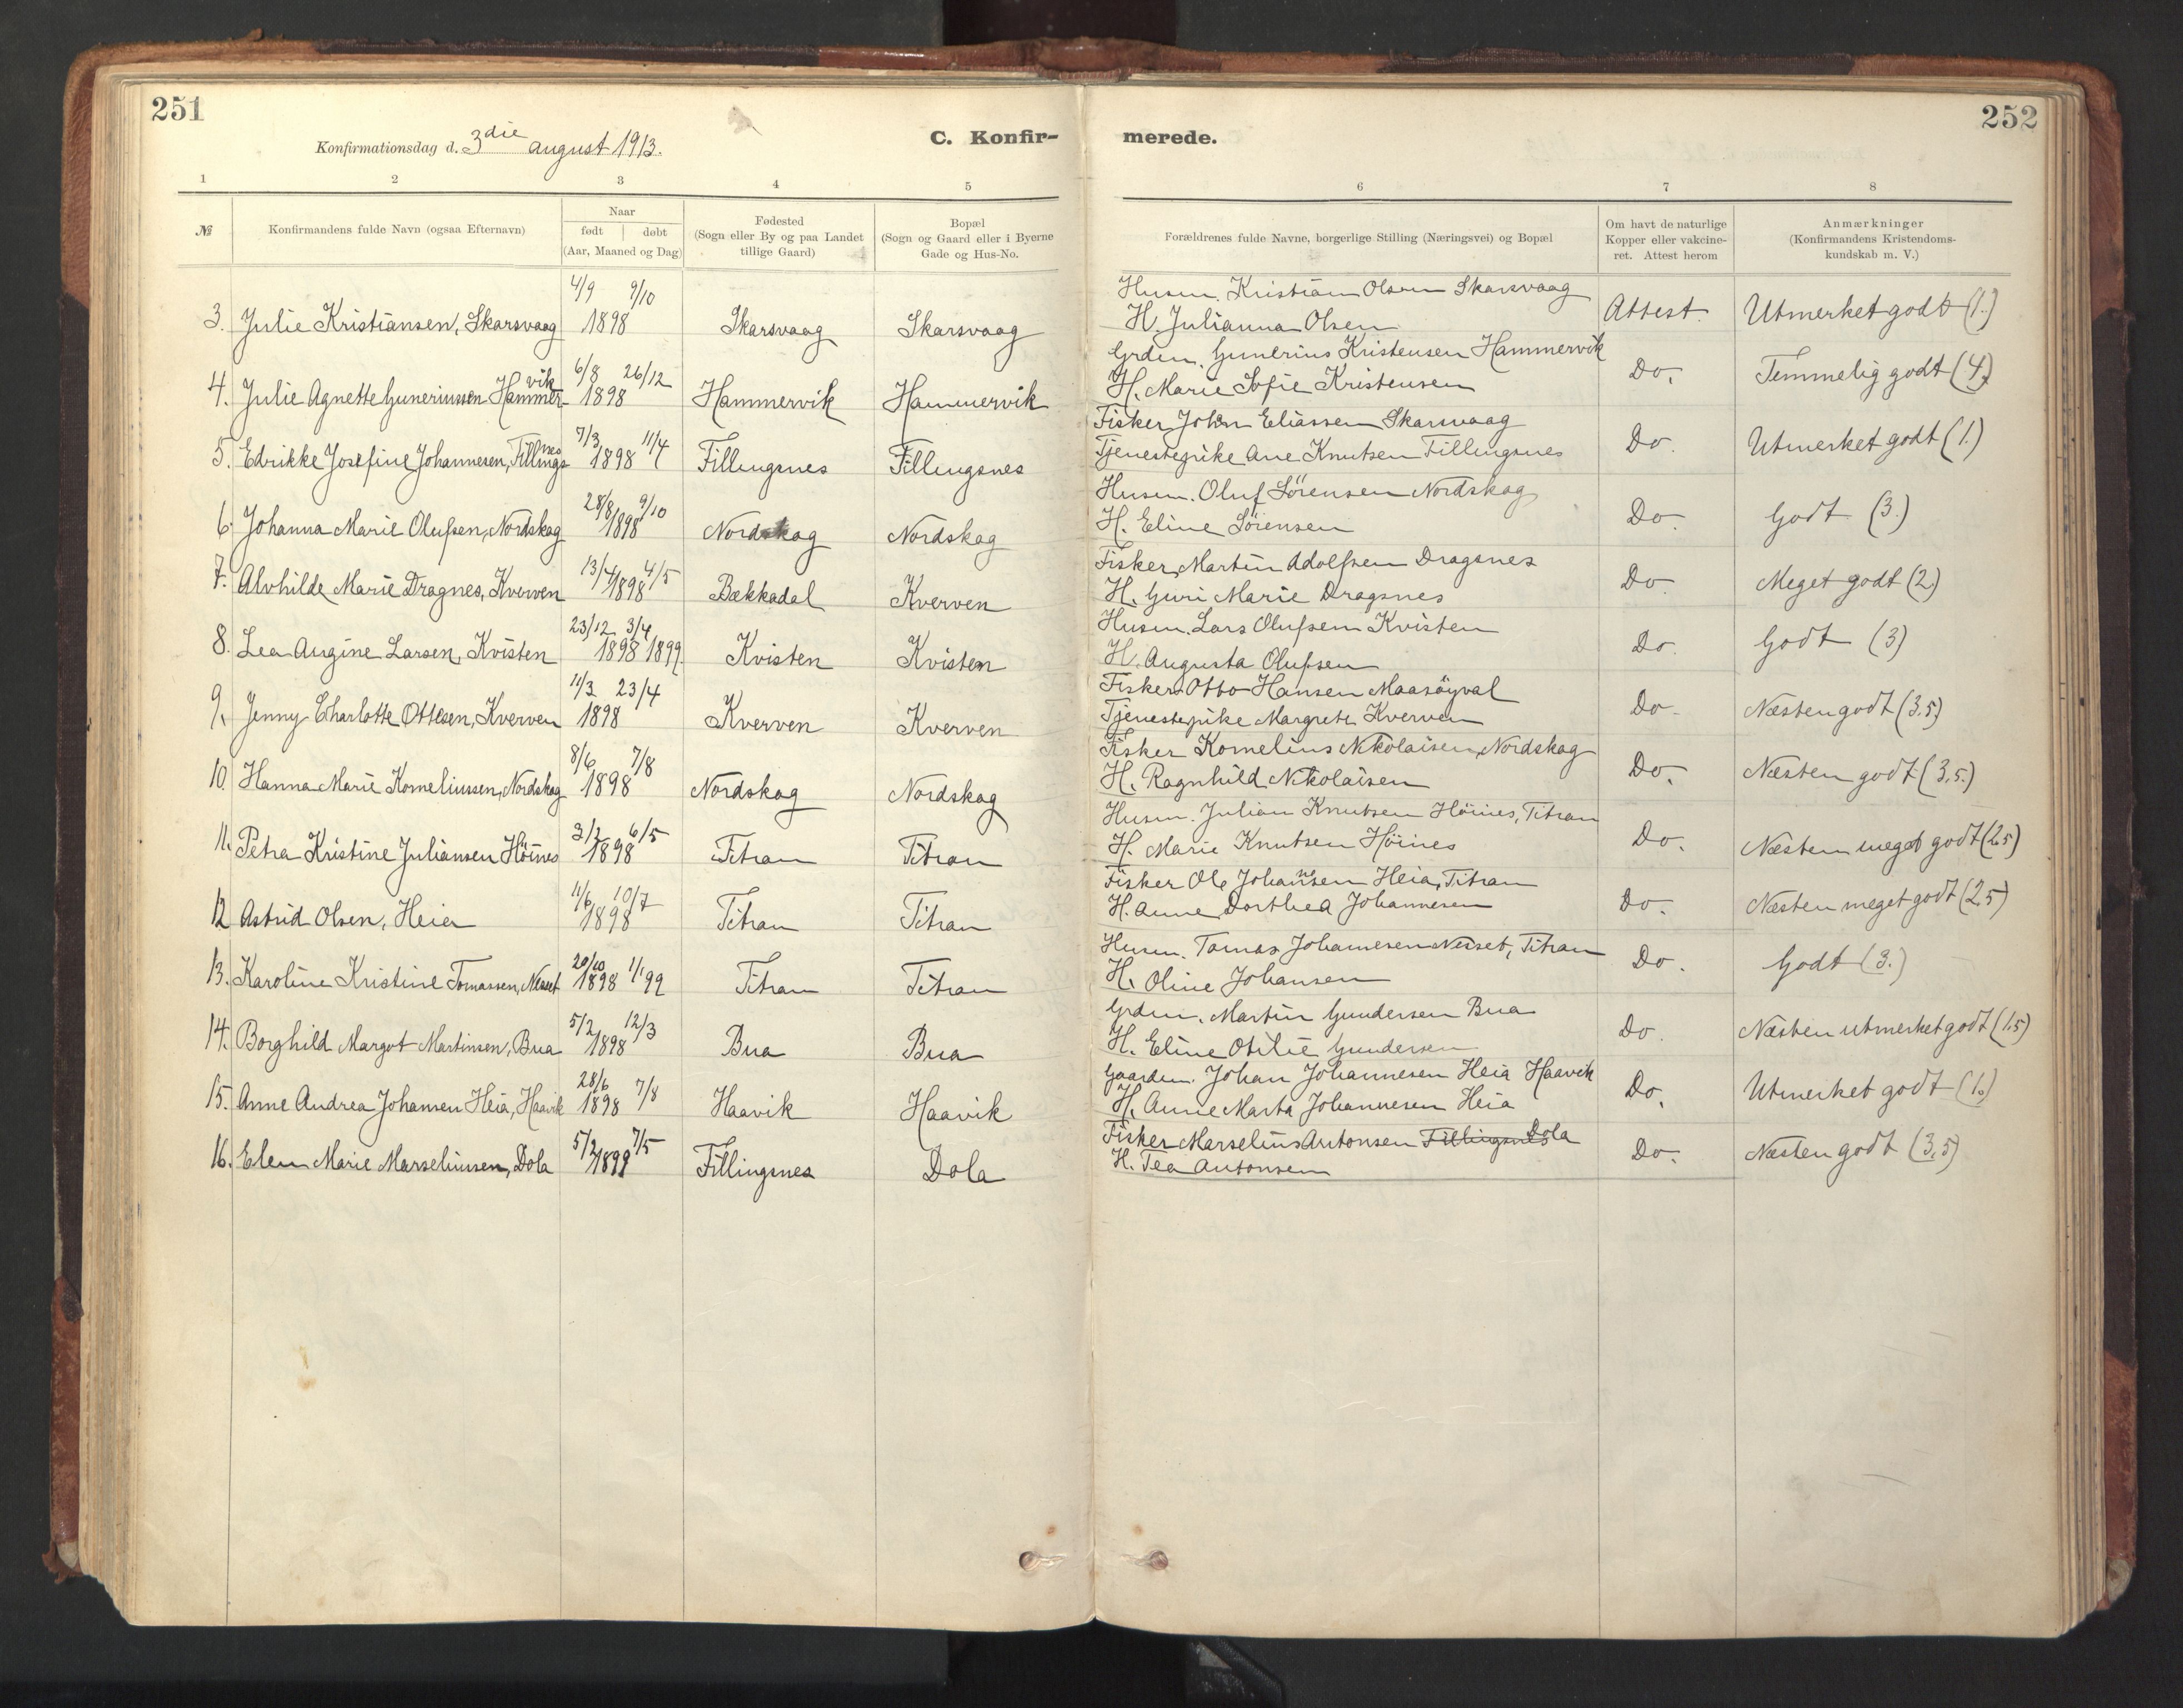 251
Konfirmationsdag d. 3die august 1913.
C. Konfir-
merede.
252
1 2 3 4 5 6 7 8
№ Konfirmandens fulde Navn (ogsaa Efternavn)
Naar
født døbt
(Aar, Maaned og Dag)
Fødested
(Sogn eller By og paa Landet
tillige Gaard)
Bopæl
(Sogn og Gaard eller i Byerne
Gade og Hus-No.
Forældrenes fulde Navne, borgerlige Stilling (Næringsvei) og Bopæl
Om havt de naturlige
Kopper eller vakcine-
ret. Attest herom
Anmærkninger
(Konfirmandens Kristendoms-
kundskab m. V.)
4/9 9/10 Husm. Kristian Olsen Skarsvaag
3. Julie Kristiansen, Skarsvaag 1898 Skarsvaag Skarsvaag H. Julianna Olsen Attest. Utmerket godt (1.)
vik 6/8 26/12 Grdm. Gunerius Kristensen Hammervik
4. Julie Agnette Guneriussen Hammer- 1898 Hammervik Hammervik H. Marie Sofie Kristensen Do. Temmelig godt (4)
nes 7/3 11/4 Fisker Johan Eliassen Skarsvaag
5. Edrikke Josefine Johannesen, Tillings 1898 Fillingsnes Fillingsnes Tjenestepike Ane Knutsen Fillingsnes Do. Utmerket godt (1.)
28/8 9/10 Husm. Oluf Sörensen Nordskag
6. Johanna Marie Olufsen, Nordskag 1898 Nordskag Nordskag H. Eline Sörensen Do. Godt (3.)
13/4 4/5 Fisker Martin Adolfsen Dragsnes
7. Alvhilde Marie Dragnes, Kverven 1898 Bækkadal Kverven H. Guri Marie Dragsnes Do. Meget godt (2.)
23/12 3/4 Husm. Lars Olufsen Kvisten
8. Lea Augine Larsen, Kvisten 1898 1899. Kvisten Kvisten H. Augusta Olufsen Do. Godt (3)
11/3 23/4 Fisker Otto Hansen Maasöyval
9. Jenny Charlotte Ottesen, Kverven 1898 Kverven Kverven Tjenestepike Margrete Kverven Do. Næsten godt (3,5)
8/6 7/8 Fisker Kornelius Nikolaisen, Nordskag
10. Hanna Marie Korneliussen, Nordskag 1898 Nordskag Nordskag H. Ragnhild Nikolaisen Do. Næsten godt (3,5.)
3/2 6/5 Husm. Julian Knutsen Höines, Titran
11. Petra Kristine Juliansen Höines 1898 Titran Titran H. Marie Knutsen Höines Do. Næsten meget godt (2,5)
11/6 10/7 Fisker Ole Johannesen Heia, Titran
12 Astrid Olsen, Heia 1898 Titran Titran H. Anne Dorthea Johannesen Do. Næsten meget godt (2,5)
20/10 Husm. Tomas Johannesen Nesset, Titran
13. Karoline Kristine Tomassen, Nesset 1898 1/1 99 Titran Titran H. Oline Johansen Do. Godt (3.)
5/2 12/3 Grdm. Martin Gundersen Bua
14. Borghild Margot Martinsen, Bua 1898 Bua Bua H. Eline Otilie Gundersen Do. Næsten utmerket godt (1,5)
28/6 7/8 Gaardm. Johan Johannesen Heia Haavik
15. Anne Andrea Johansen Heia, Haavik 1898 Haavik Haavik H. Anne Marta Johannesen Heia Do. Utmerket godt (1.)
5/2 7/5 Fisker Marselius Antonsen Fillingsnes Dola
16. Elen Marie Marseliussen, Dola 1899 Fillingsnes Dola H. Tea Antonsen Do. Næsten godt (3,5)